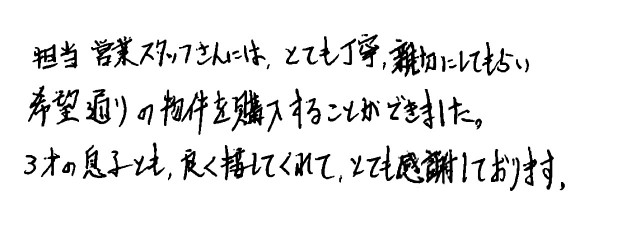 担当営業スタッフさんには、とても丁寧、親切にしてもらい
希望通りの物件を購入することができました。
3才の息子とも、良く接してくれて、とても感謝しております。